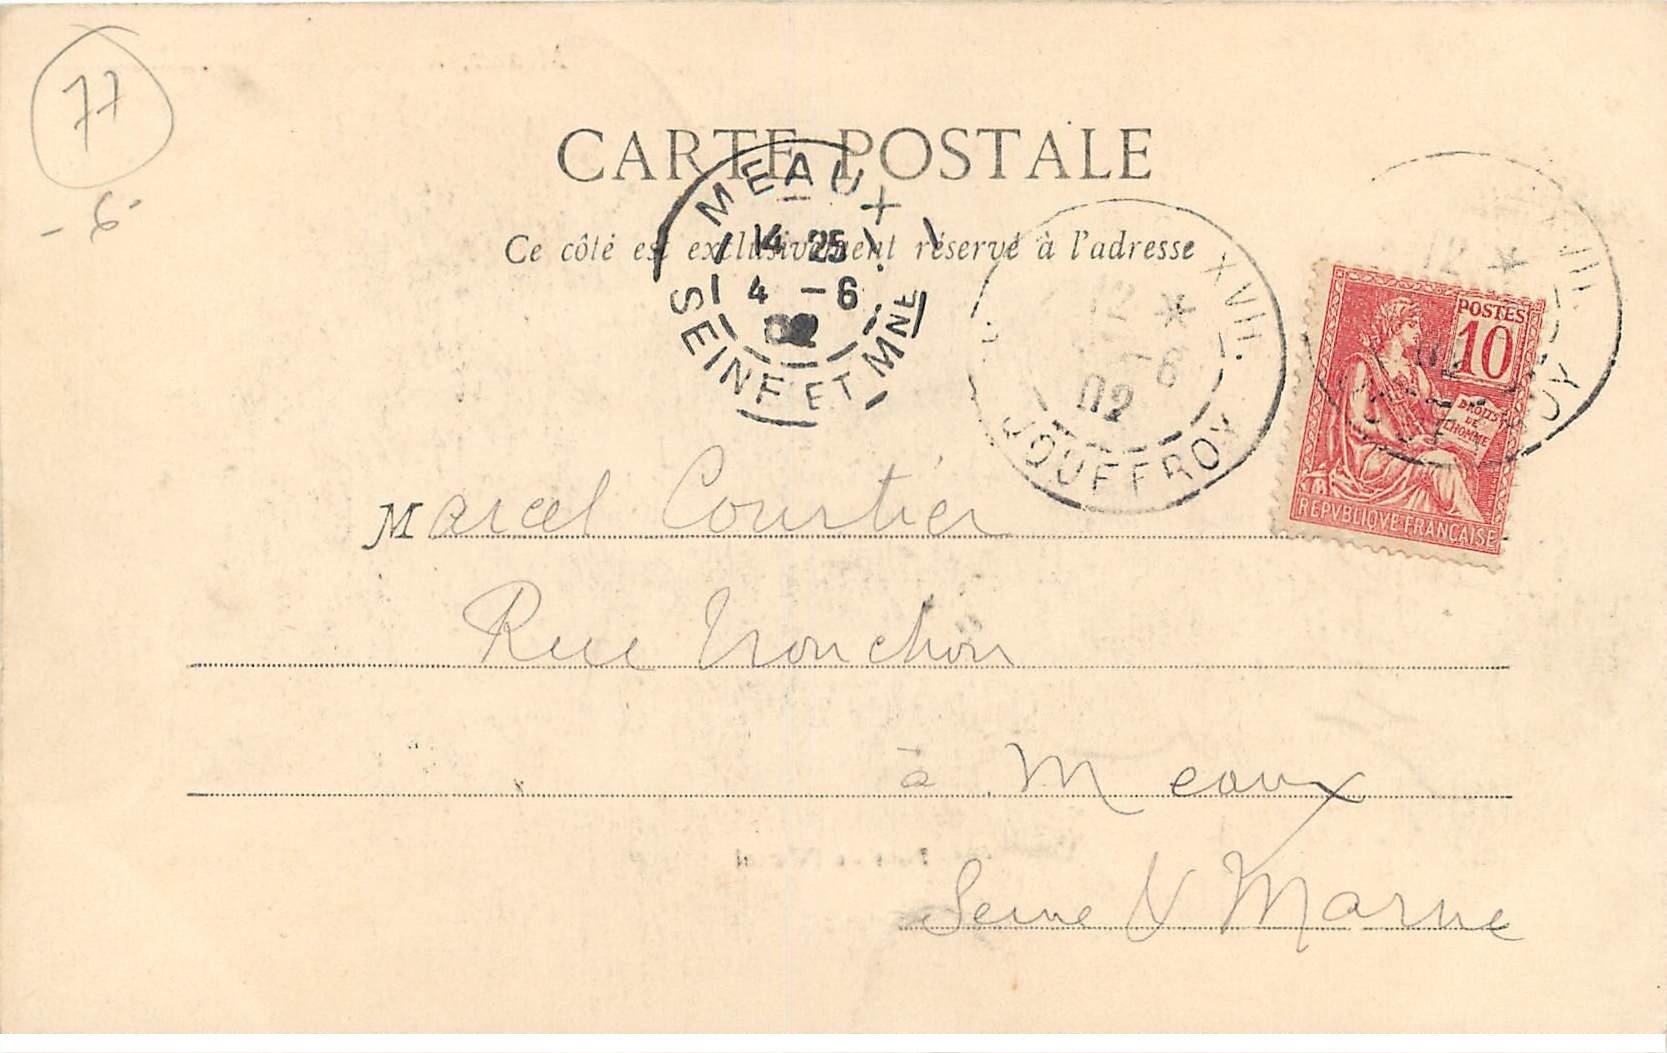 77
- 6 -
CARTE POSTALE
Ce côté est exclusivement réservé à l'adresse
MEAUX
14 25
4 - 6
02
SEINE ET MNE
XVII.
12 *
- 6
02
JOUFFROY
XVII.
12 *
02
POSTES
10
DROITS
DE
L'HOMME
REPVBLIQVE FRANÇAISE
Marcel Courtier
Rue Tronchon
à Meaux
Seine & Marne